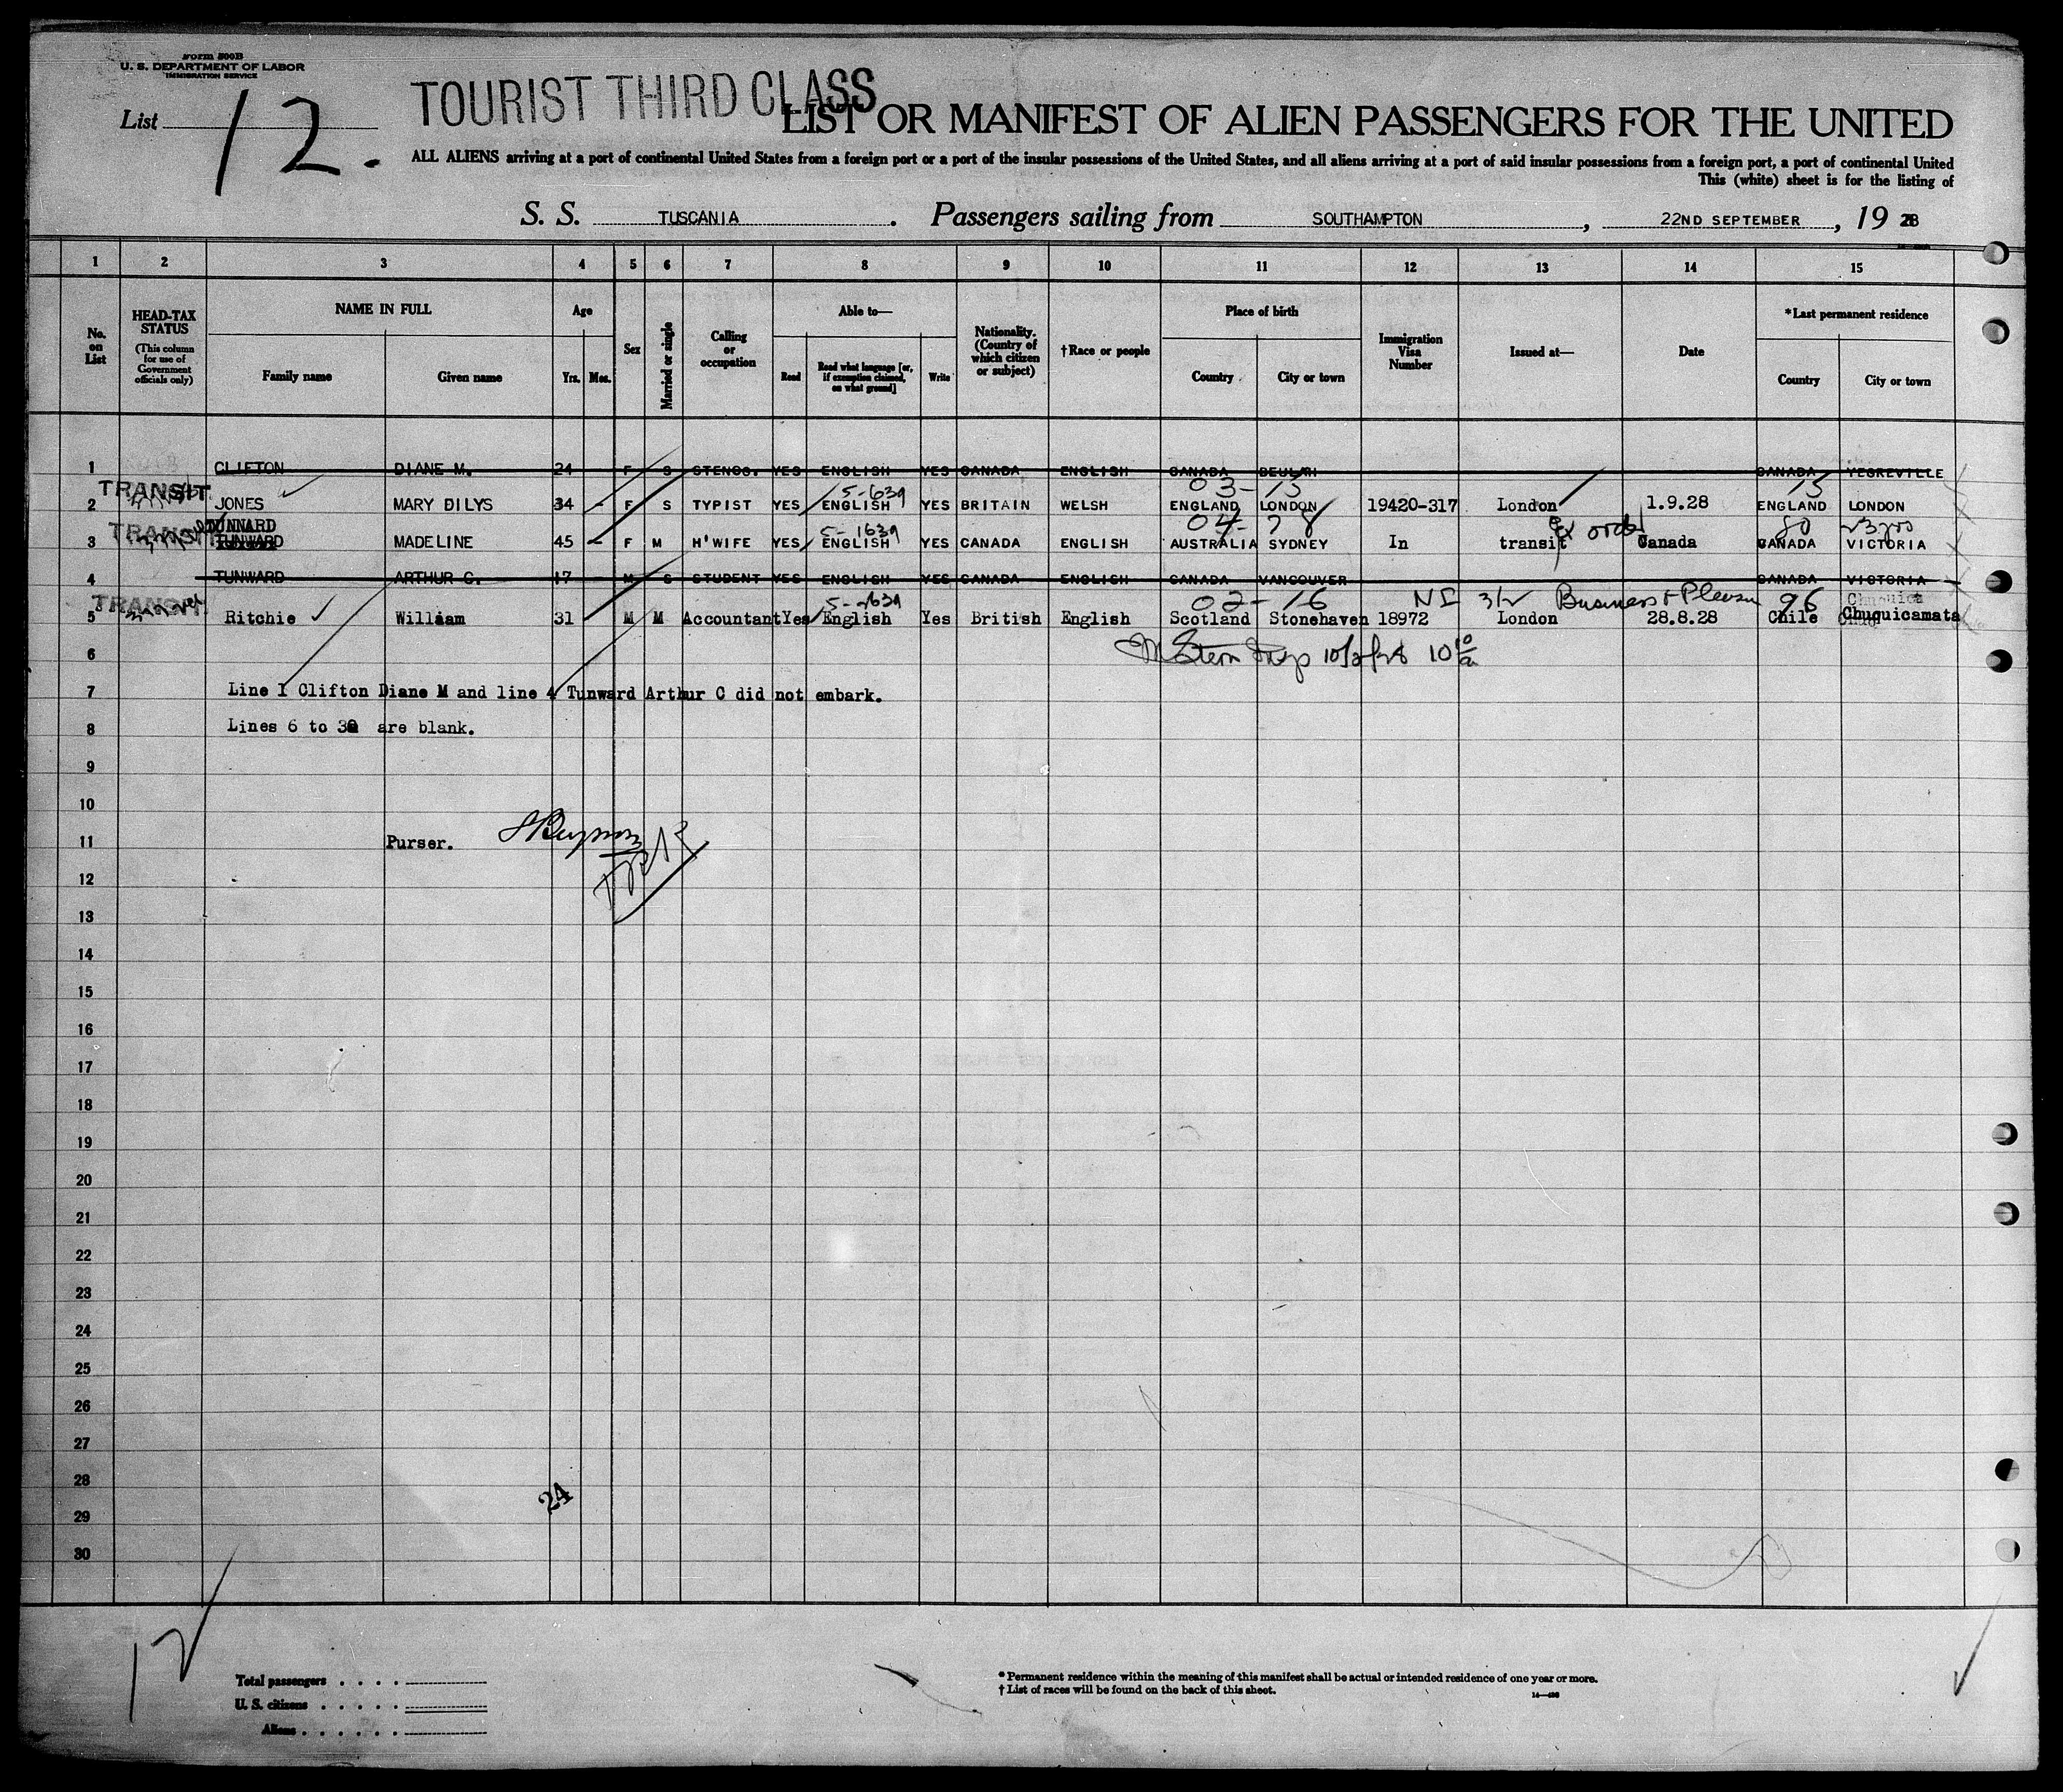 Form 500B
U. S. DEPARTMENT OF LABOR
IMMIGRATION SERVICE
List 12.
TOURIST THIRD CLASS
LIST OR MANIFEST OF ALIEN PASSENGERS FOR THE UNITED
ALL ALIENS arriving at a port of continental United States from a foreign port or a port of the insular possessions of the United States, and all aliens arriving at a port of said insular possessions from a foreign port, a port of continental United
This (white) sheet is for the listing of
S. S. TUSCANIA. Passengers sailing from SOUTHAMPTON, 22ND SEPTEMBER, 1928
1 2 3 4 5 6 7 8 9 10 11 12 13 14 15
No. on List
HEAD-TAX STATUS (This column for use of Government officials only)
NAME IN FULL Family name Given name
Age Yrs. Mos.
Sex
Married or single
Calling or occupation
Able to— Read Read what language [or, if exemption claimed, on what ground] Write
Nationality. (Country of which citizen or subject)
†Race or people
Place of birth Country City or town
Immigration Visa Number
Issued at—
Date
*Last permanent residence Country City or town
1 CLIFTON DIANE M. 24 F S STENOG. YES ENGLISH YES CANADA ENGLISH CANADA BEULAH CANADA YEGREVILLE
TRANSIT 5-639 03- 15 15
2 JONES MARY DILYS 34 F S TYPIST YES ENGLISH YES BRITAIN WELSH ENGLAND LONDON 19420-317 London 1.9.28 ENGLAND LONDON
TRANSIT TUNNARD 5-1639 04- 78 80
3 TUNWARD MADELINE 45 F M H'WIFE YES ENGLISH YES CANADA ENGLISH AUSTRALIA SYDNEY In transit Canada CANADA VICTORIA
4 TUNWARD ARTHUR C. 17 M S STUDENT YES ENGLISH YES CANADA ENGLISH CANADA VANCOUVER CANADA VICTORIA
TRANSIT 5-2639 02- 16 NI 3/2 Business & Pleasure 96
5 Ritchie William 31 M M Accountant Yes English Yes British English Scotland Stonehaven 18972 London 28.8.28 Chile Chuquicamata
6
7 Line I Clifton Diane M and line 4 Tunward Arthur C did not embark.
8 Lines 6 to 30 are blank.
9
10
11 Purser.
12
13
14
15
16
17
18
19
20
21
22
23
24
25
26
27
28
24
29
30
12
Total passengers
U. S. citizens
Aliens
* Permanent residence within the meaning of this manifest shall be actual or intended residence of one year or more.
† List of races will be found on the back of this sheet.